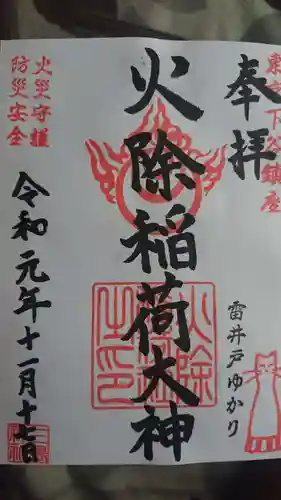 東京下谷鎮座
奉拝
火除稲荷大神
火災守護
防災安全
令和元年十一月十七日
雷井戸ゆかり
火除
稲荷
之印